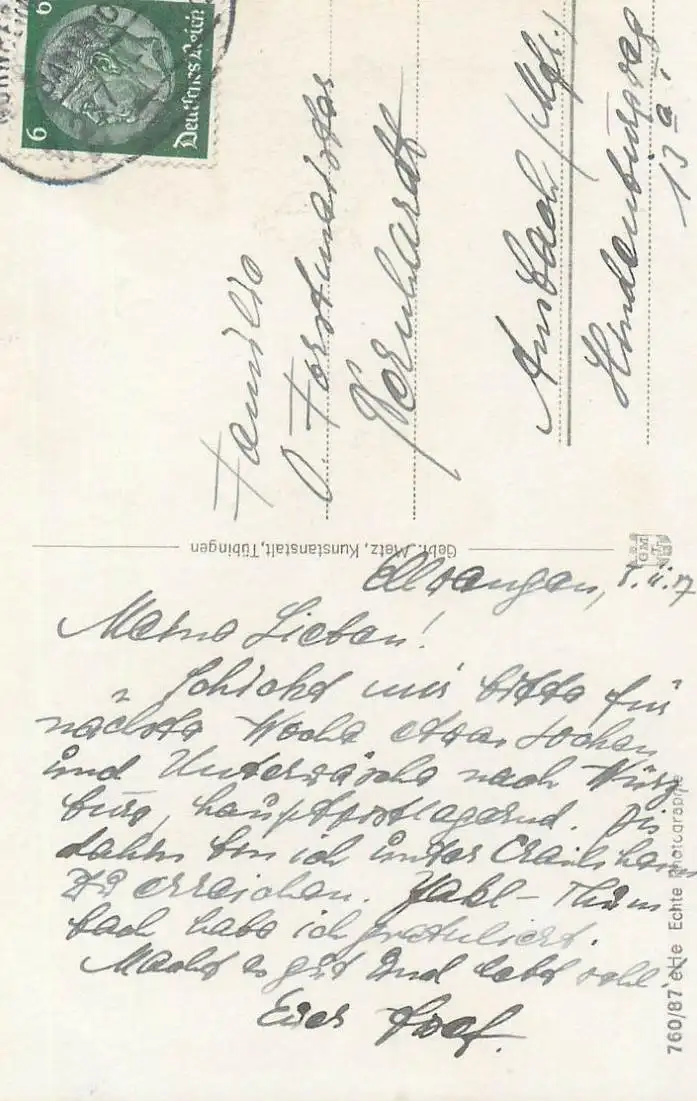 6
6
Deutsches Reich
Familie
O. Forstmeister
Bernhardt
Ansbach / Mfr.
Hindenburgweg
13 a.
Gebr. Metz, Kunstanstalt, Tübingen
GM
Ellwangen,
Meine Lieben!
Schickt mir bitte für
nächste Woche etwas Socken
und Unterwäsche nach Würz
burg, hauptpostlagernd. Bis
dahin bin ich unter Crailsheim
zu erreichen.
bach habe ich gratuliert.
Macht es gut und lebt wohl!
Euer Josef.
760/87 Echte Photographie